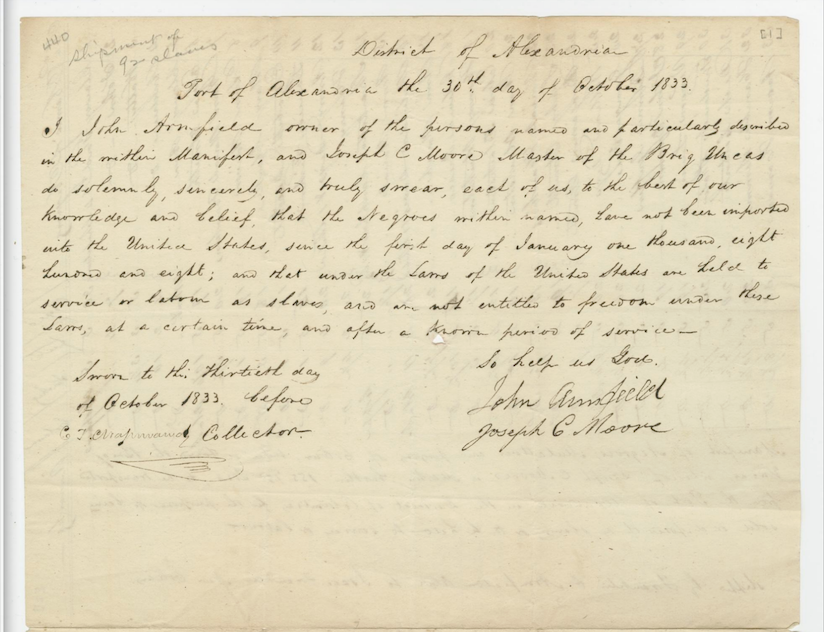 440
shipment of
92 slaves
[1]
District of Alexandria
Port of Alexandria the 30th day of October 1833.
I John Armfield owner of the persons named and particularly described
in the within Manifest, and Joseph C Moore Master of the Brig Uncas
do solemnly, sincerely, and truly swear, each of us, to the best of our
knowledge and belief, that the Negroes within named, have not been imported
into the United States, since the first day of January one thousand, eight
hundred and eight; and that under the Laws of the United States are held to
service or labour as slaves, and are not entitled to freedom under these
Laws, at a certain time, and after a known period of service—
So help us God.
Sworn to this thirtieth day
of October 1833. before
Collector.
John Armfield
Joseph C Moore